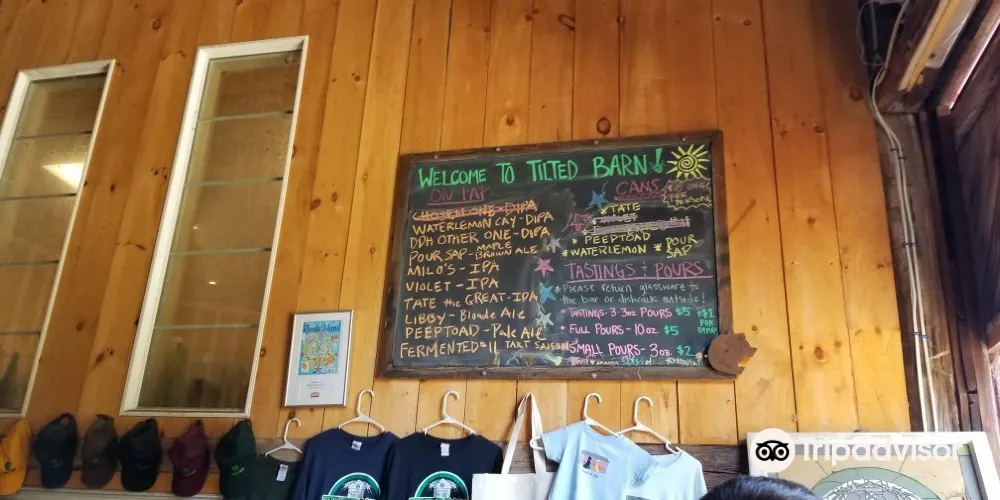 WELCOME TO TILTED BARN!
ON TAP
CHOSEN ONE - DIPA
WATERLEMON CAY - DIPA
DPH OTHER ONE - DIPA
POUR SAP - MAPLE BROWN ALE
MILO'S - IPA
VIOLET - IPA
TATE the GREAT - IPA
LIBBY - Blonde Ale
PEEPTOAD - Pale Ale
FERMENTED #11 TART SAISON
CANS
* TATE
* PEEPTOAD
* WATERLEMON * POUR SAP
TASTINGS + POURS
* Please return glassware to
the bar or dishrack outside!
* TASTINGS - 3 - 3oz POURS $5 +$1 FOR DIPA
* FULL POURS - 10 oz. $5
* SMALL POURS - 3 oz. $2
Rhode Island
Tripadvisor